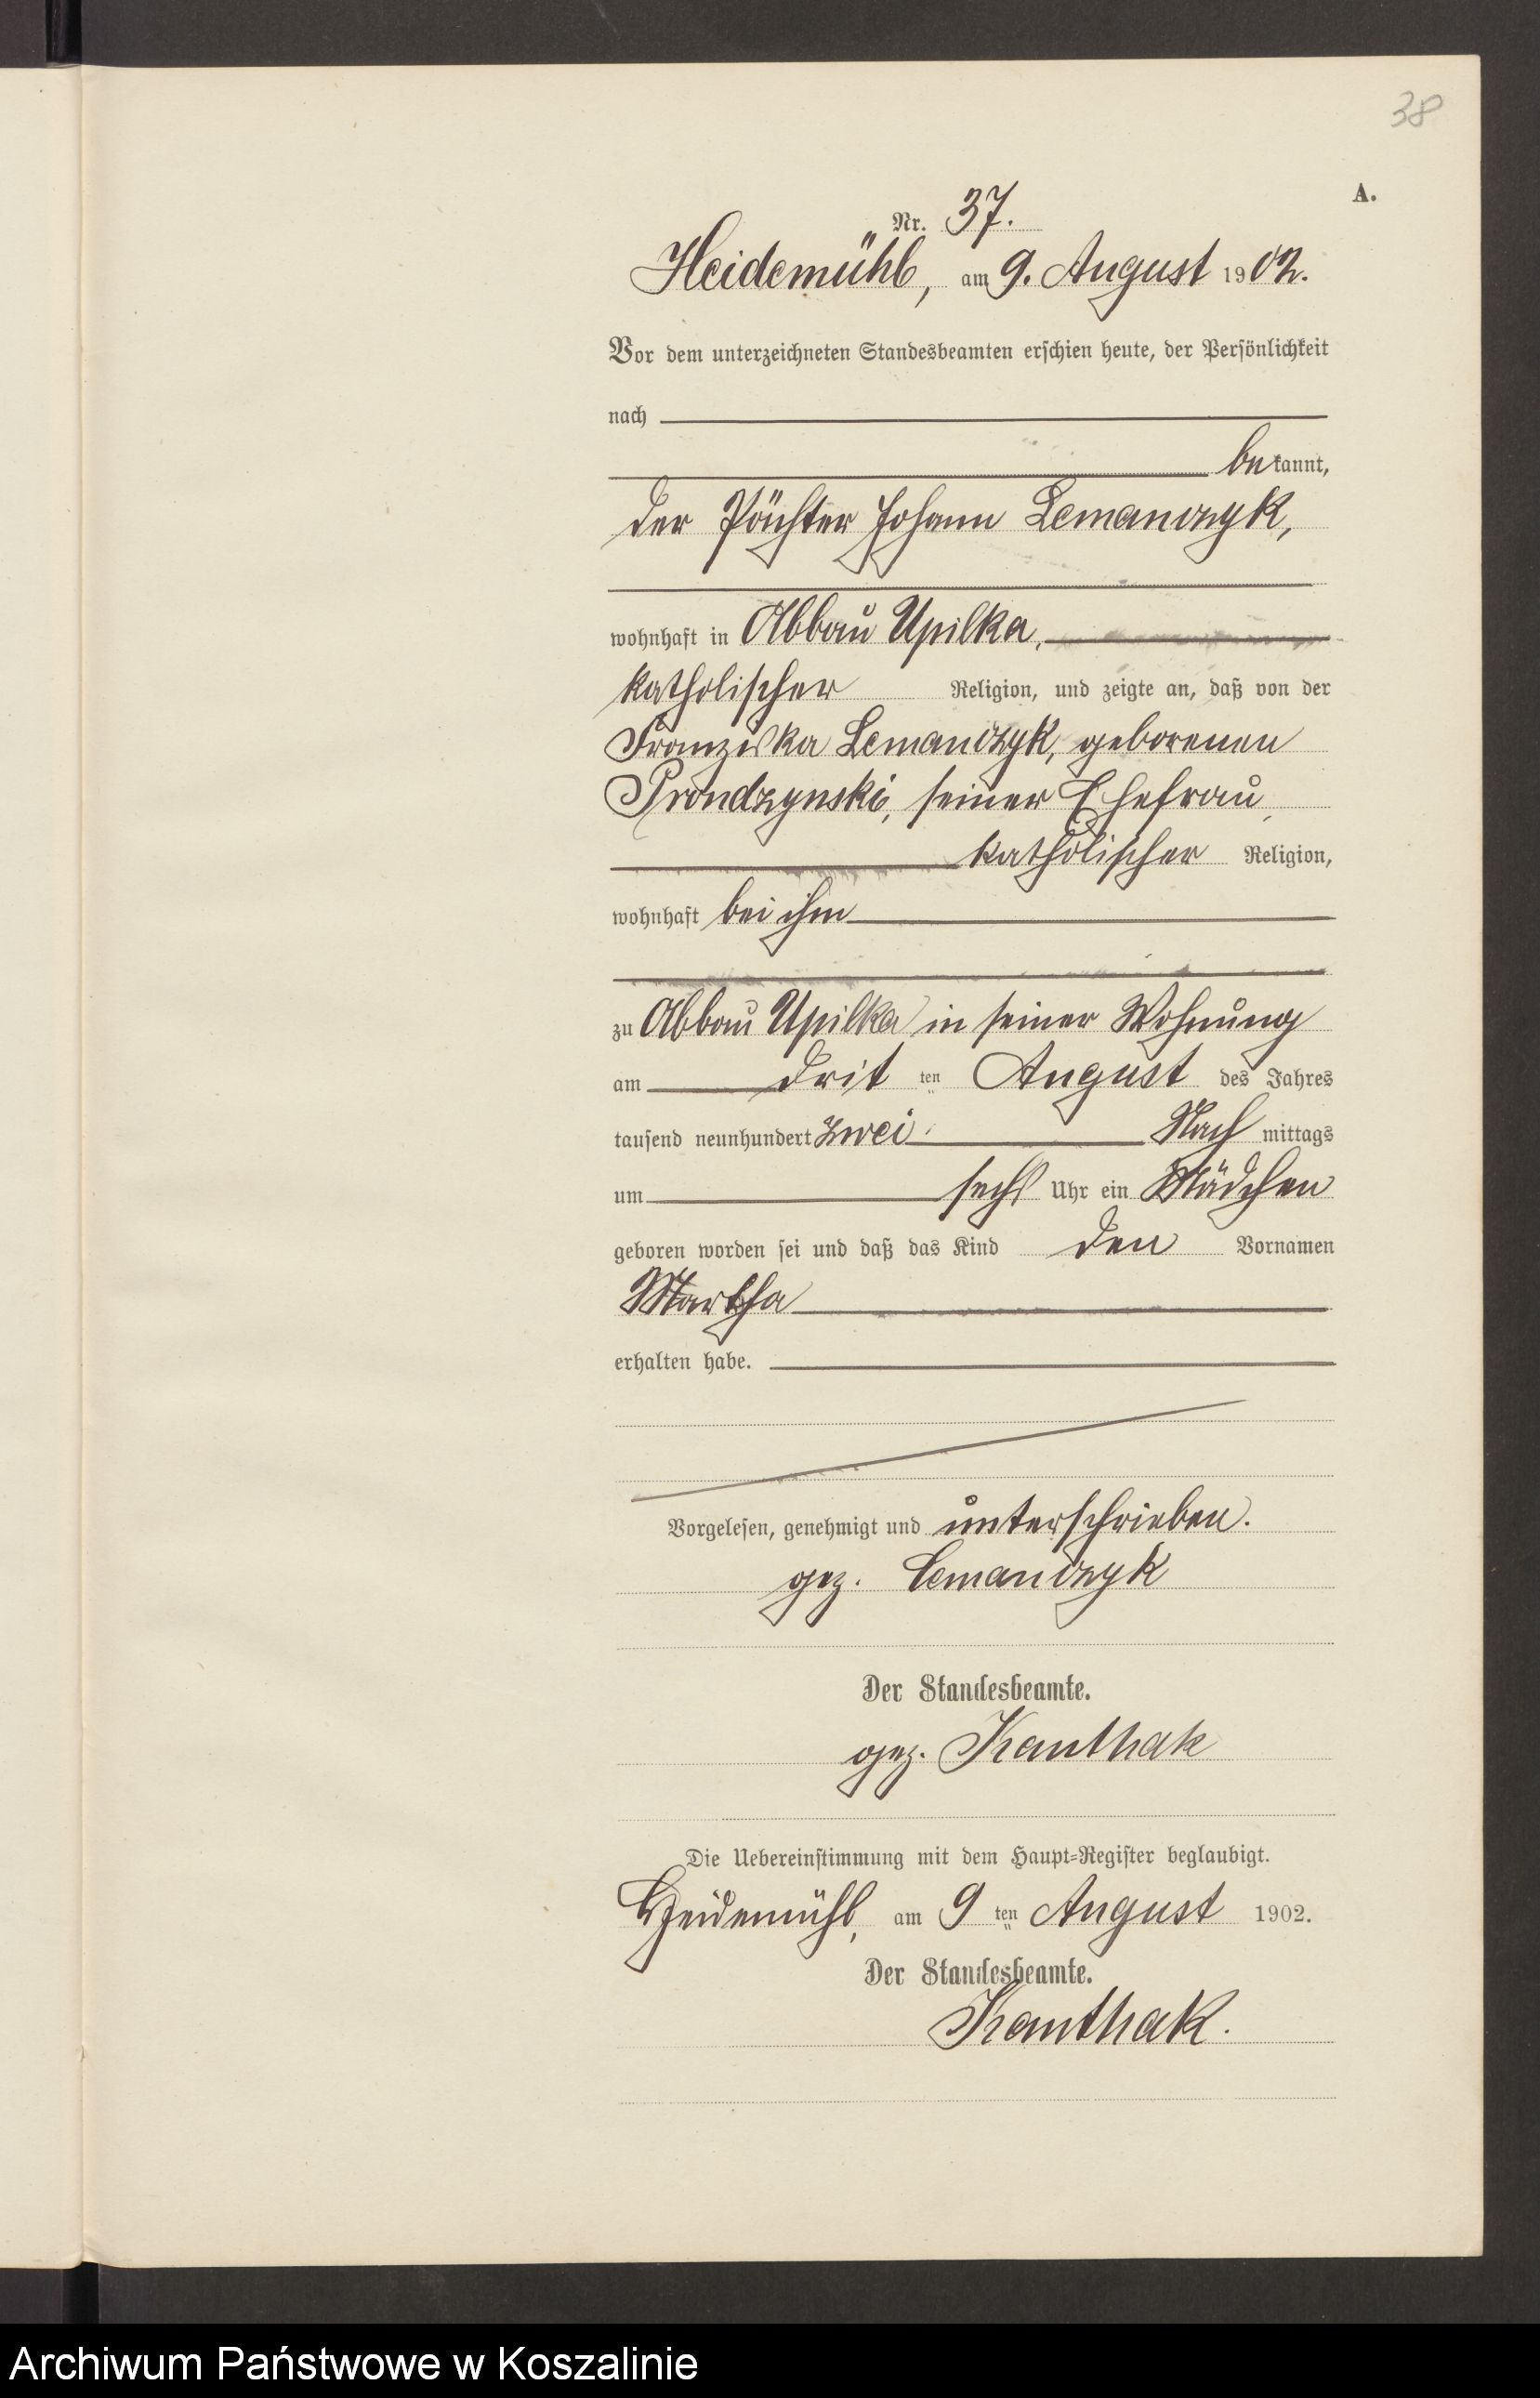 38
A.
Nr. 37.
Heidemühl, am 9. August 1902.
Vor dem unterzeichneten Standesbeamten erschien heute, der Persönlichkeit
nach
bekannt,
der Pächter Johann Lemanczyk,
wohnhaft in Abbau Upilka,
katholischer Religion, und zeigte an, daß von der
Franziska Lemanczyk, geborenen
Prondzynski, seiner Ehefrau,
katholischer Religion,
wohnhaft bei ihm
zu Abbau Upilka in seiner Wohnung
am drit ten August des Jahres
tausend neunhundert zwei Nach mittags
um sechs Uhr ein Mädchen
geboren worden sei und daß das Kind den Vornamen
Martha
erhalten habe.
Vorgelesen, genehmigt und unterschrieben.
gez. Lemanczyk
Der Standesbeamte.
gez. Kanthak
Die Uebereinstimmung mit dem Haupt-Register beglaubigt.
Heidemühl, am 9 ten August 1902.
Der Standesbeamte.
Kanthak.
Archiwum Państwowe w Koszalinie